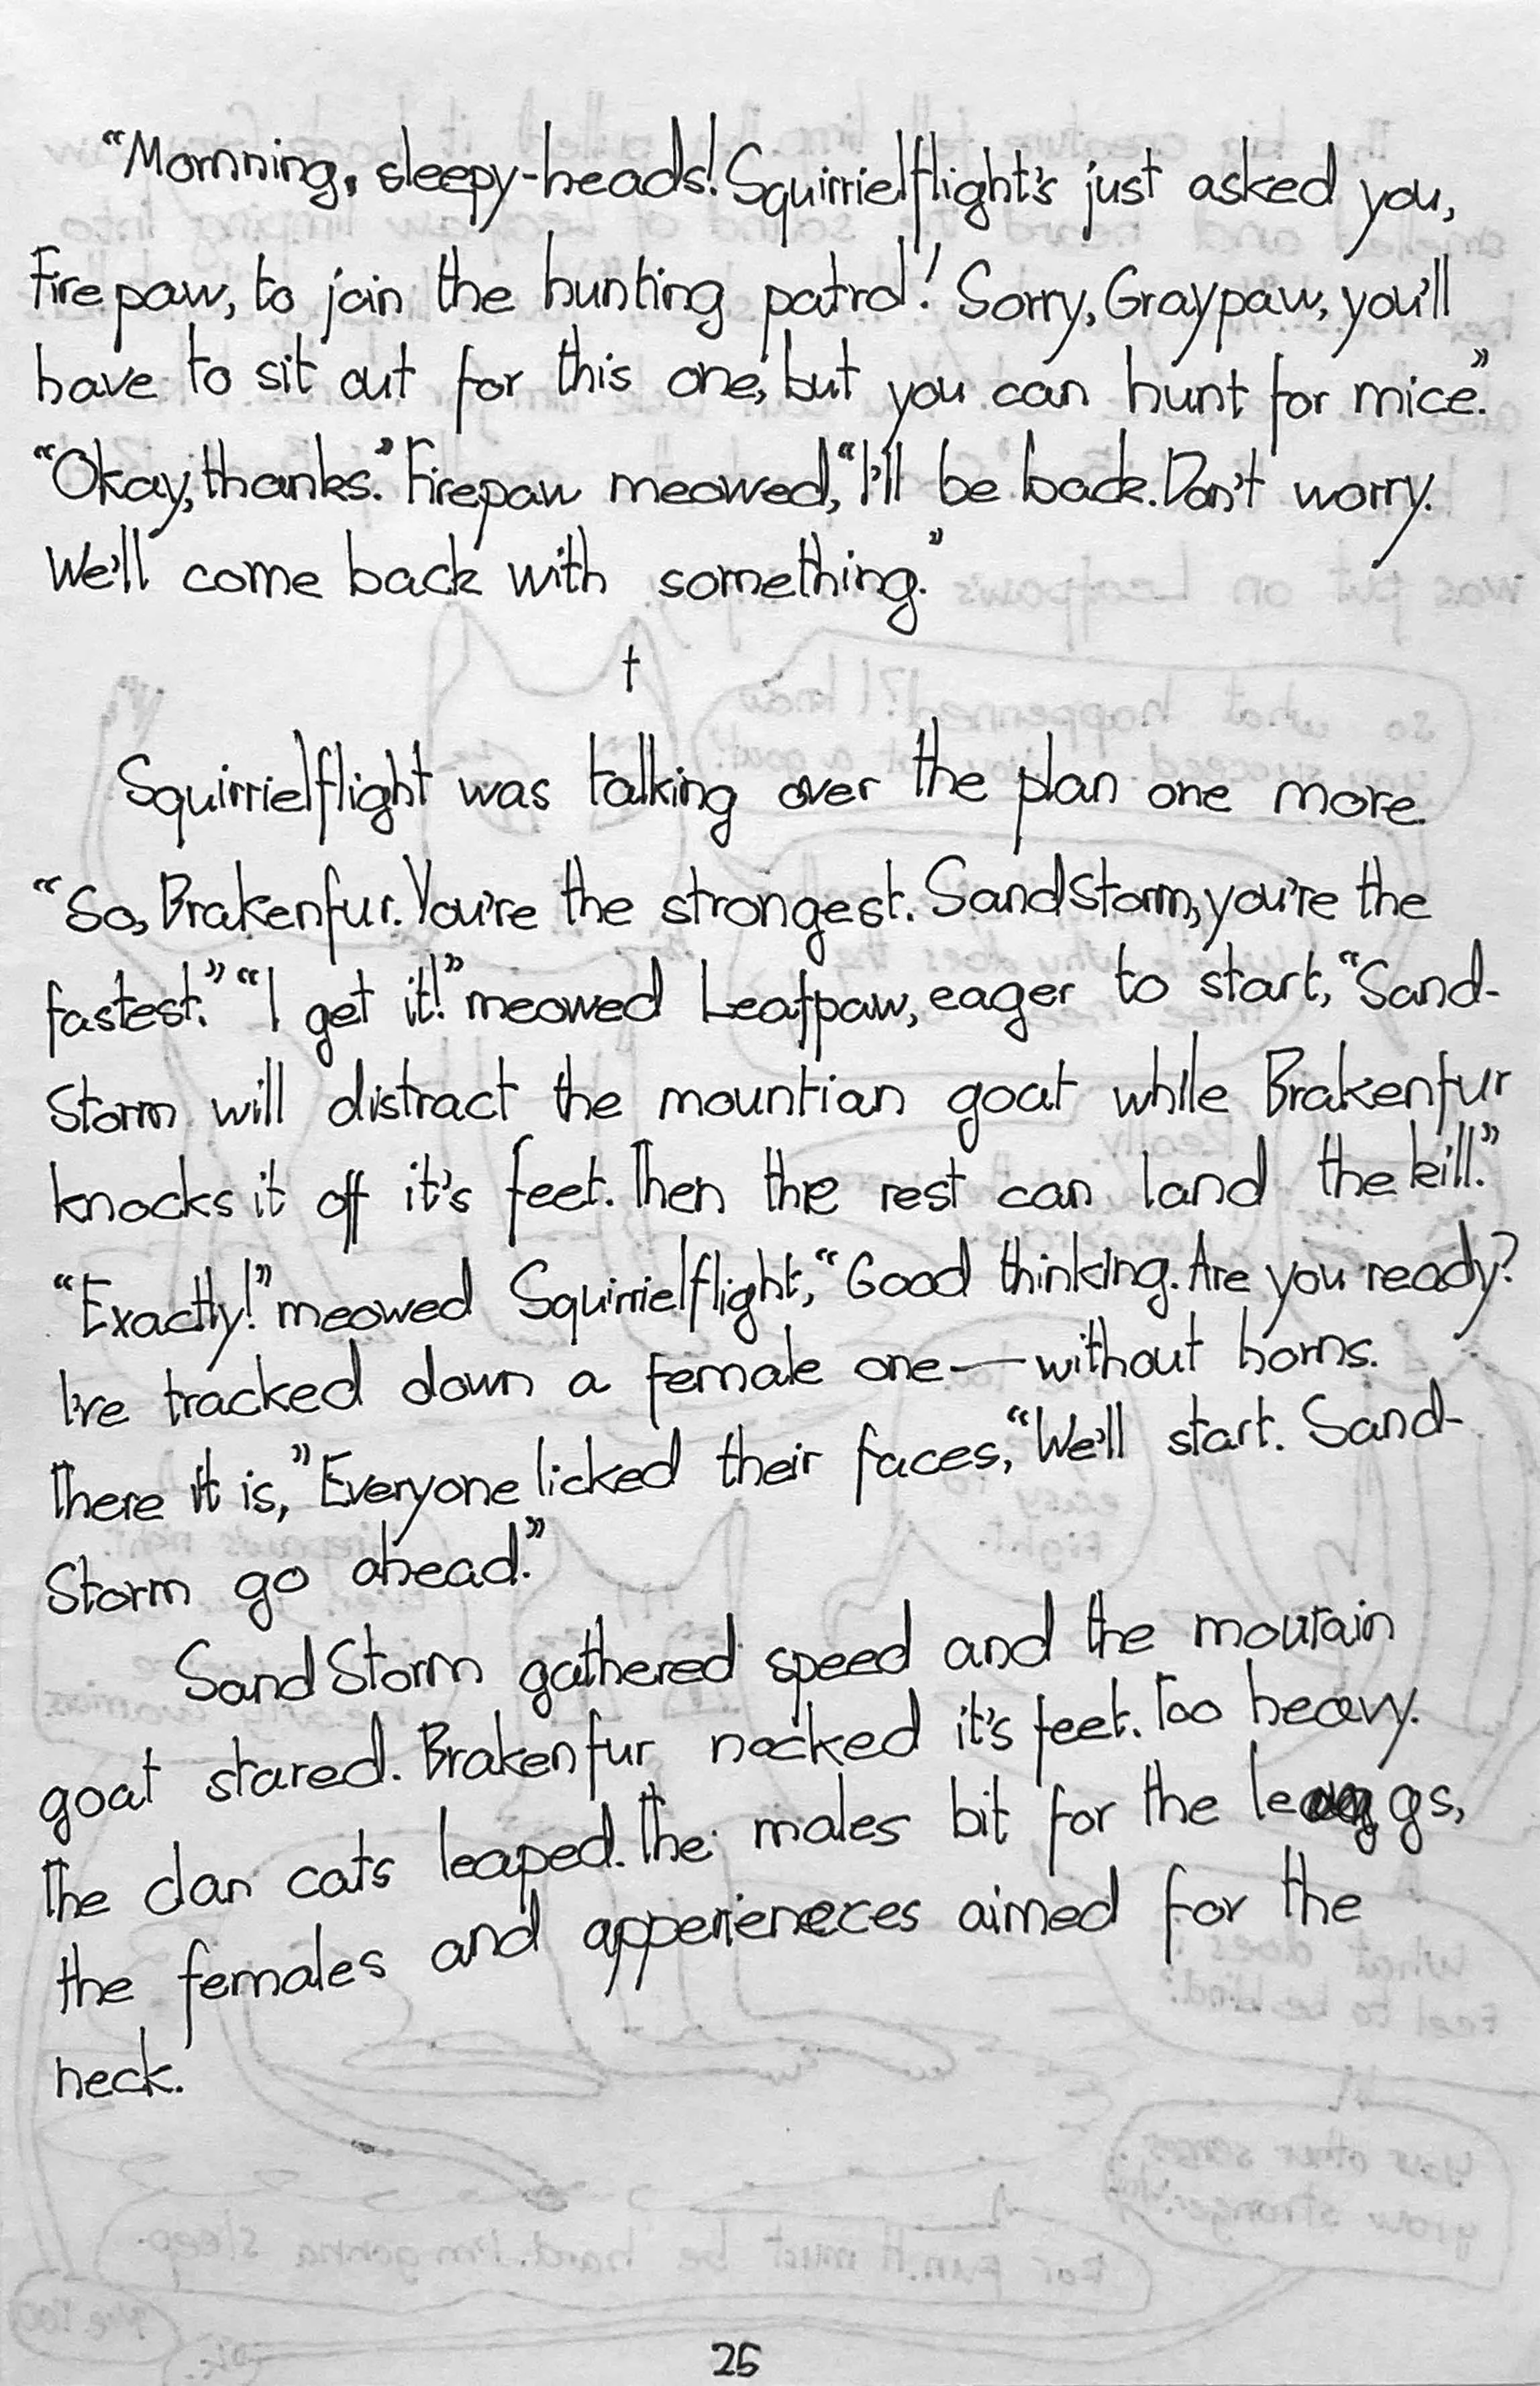 “Mornning, sleepy-heads! Squirrielflight's just asked you,
Firepaw, to join the hunting patrol! Sorry, Graypaw, you'll
have to sit out for this one, but you can hunt for mice.”
“Okay, thanks.” Firepaw meowed, “I'll be back. Don't worry.
We'll come back with something.”
†
Squirrielflight was talking over the plan one more.
“So, Brakenfur. You're the strongest. SandStorm, you're the
fastest.” “I get it!” meowed Leafpaw, eager to start, “Sand-
Storm will distract the mountian goat while Brakenfur
knocks it off it's feet. Then the rest can land the kill.”
“Exactly!” meowed Squirrielflight, “Good thinking. Are you ready?
I've tracked down a female one—without horns.
There it is,” Everyone licked their faces, “We'll start. Sand-
Storm go ahead.”
SandStorm gathered speed and the moutain
goat stared. Brakenfur nocked it's feet. Too heavy.
The clan cats leaped. The males bit for the legs,
the females and apperieneces aimed for the
neck.
25